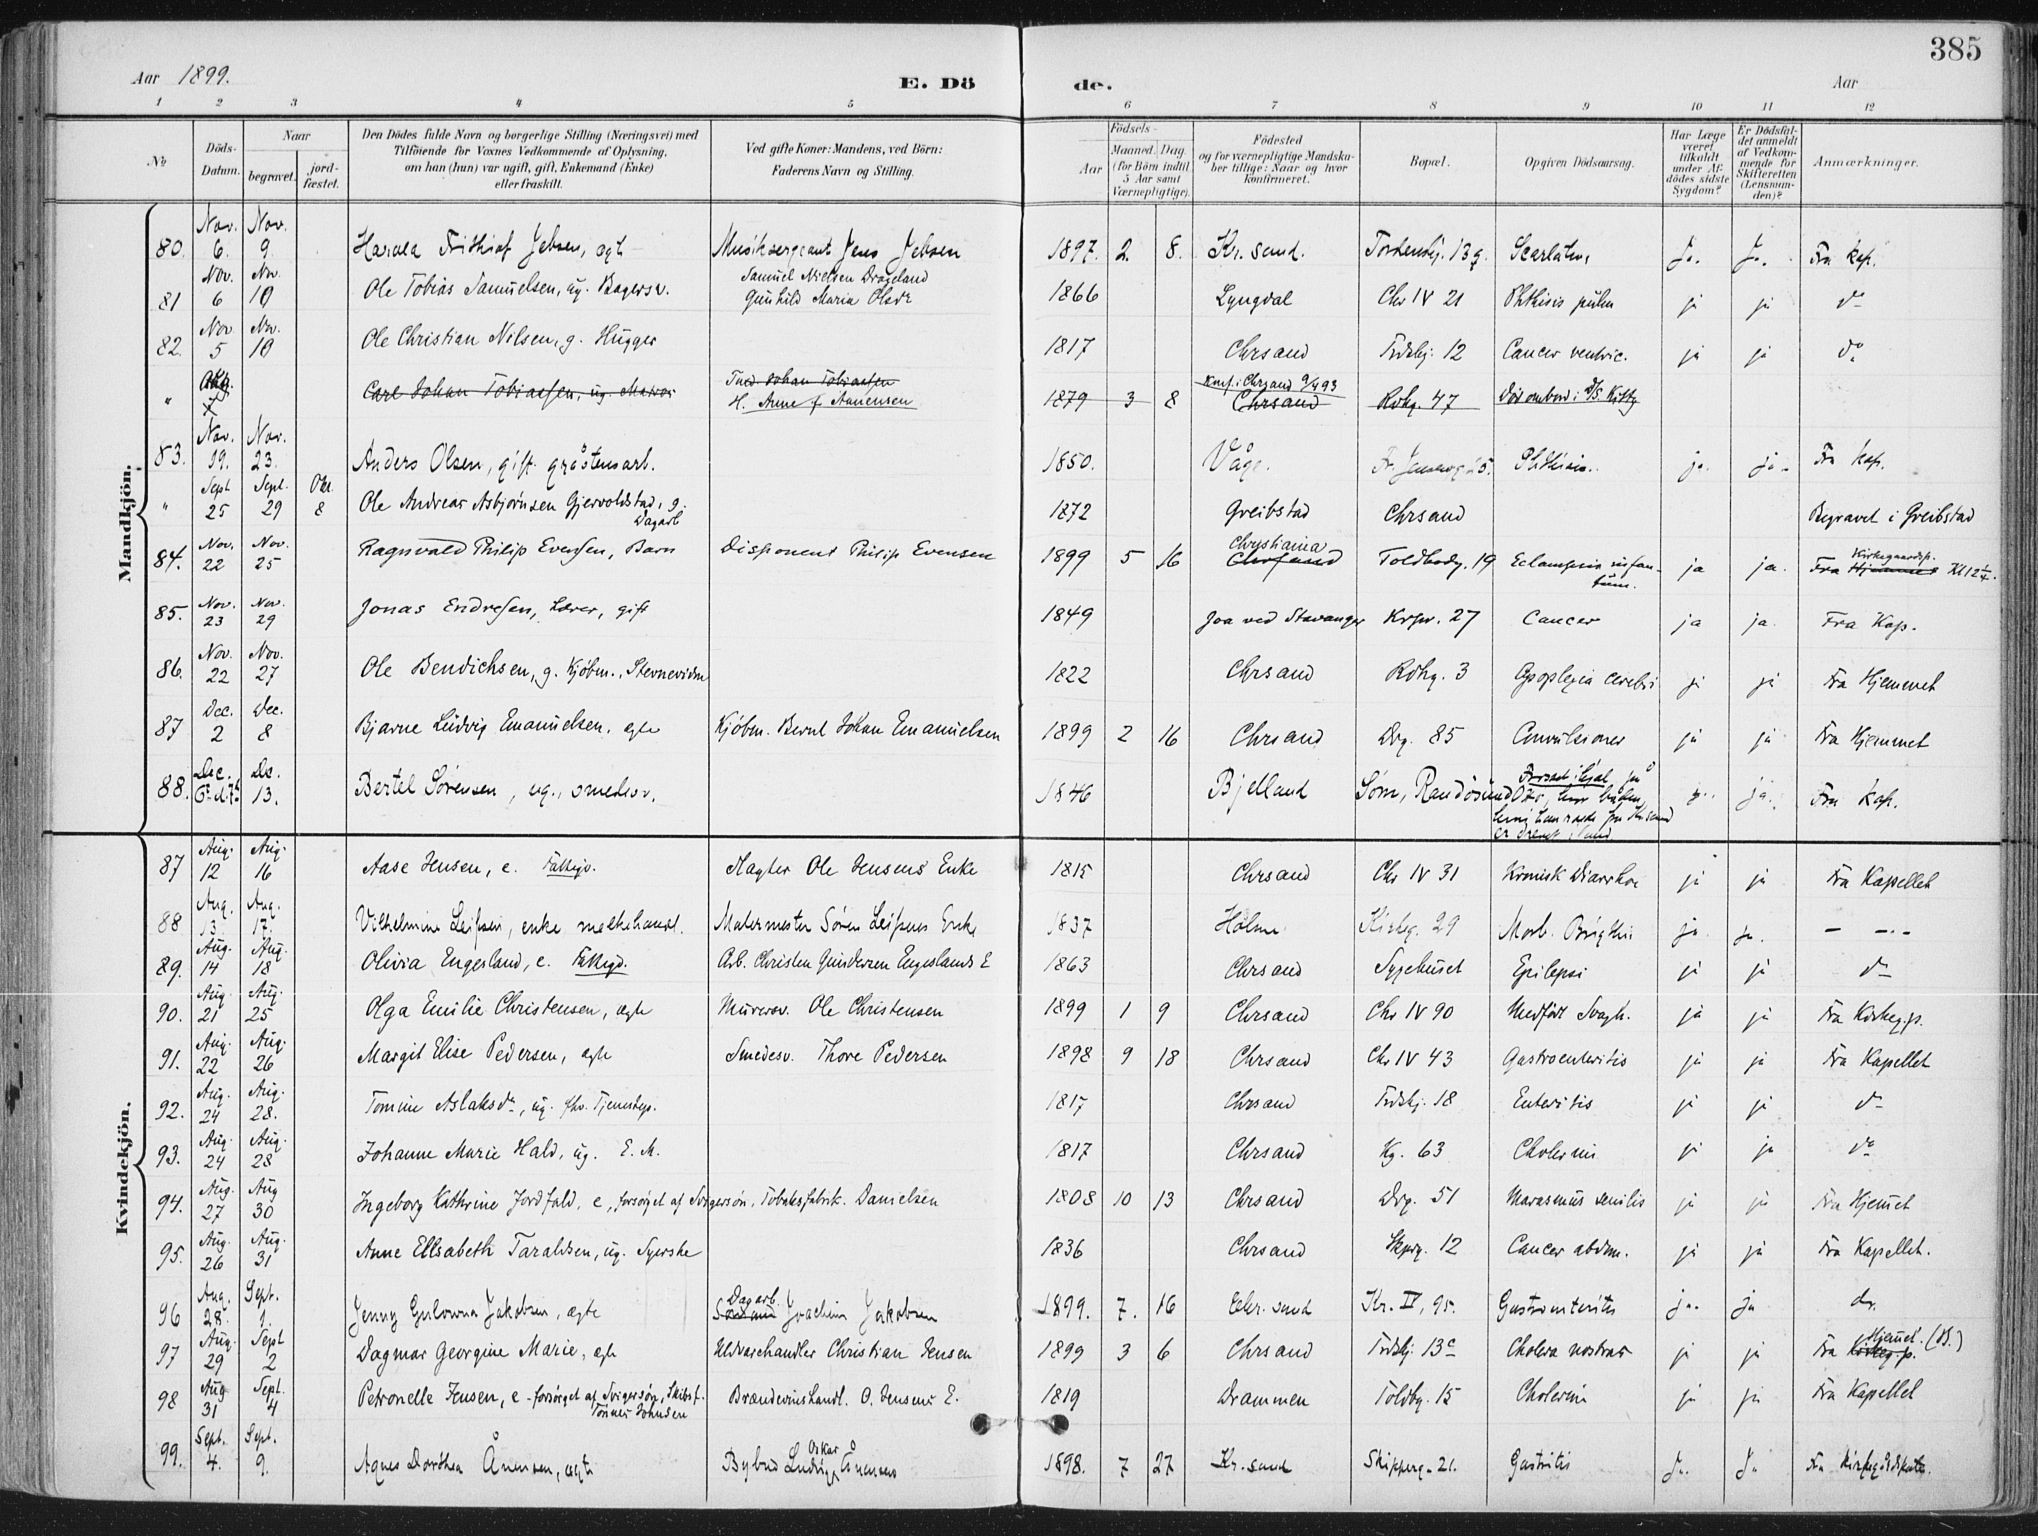 385
Aar 1899.
E. Dö
de.
Aar
1 2 3 4 5 6 7 8 9 10 11 12
No
Döds-Datum.
Naar
begravet.
jord-fæstet.
Den Dödes fulde Navn og borgerlige Stilling (Næringsvei) med
Tilföiende for Voxnes Vedkommende af Oplysning,
om han (hun) var ugift, gift, Enkemand (Enke)
eller fraskilt.
Ved gifte Koner: Mandens, ved Börn:
Faderens Navn og Stilling.
Födsels-
Aar
Maaned. Dag.
(for Börn indtil
5 Aar samt
Værnepligtige).
Födested
og for værnepligtige Mandska-
ber tillige: Naar og hvor
konfirmeret.
Bopæl.
Opgiven Dödsaarsag.
Har Læge
været
tilkaldt
under Af-
dödes sidste
Sygdom?
Er Dödsfal-
det anmeldt
af Vedkom-
mende for
Skifteretten
(Lensman-
den)?
Anmærkninger.
Mandkjön.
80. Nov. 6. Nov. 9. Harald Frithiof Jebsen, ægte Musiksergeant Jens Jebsen 1897. 2. 8. Kr. sand. 13 Scarlatin, Ja. Ja. Fra Kap.
81 Nov. 6 Nov. 10 Ole Tobias Samuelsen, ug. Bagersv. Samuel Nielsen Drageland
Gunhild Maria Olsdr 1866 Lyngdal Chr IV 21 Phthisis pulm ja ja do
82. Nov. 5 Nov. 10 Ole Christian Nilsen, g. Hugger 1817 Chrsand Frdskj. 12 Cancer ventric. ja ja do
" Carl Johan Tobiassen, ug. Matros Johan Tobiassen
H. Anne f Aanensen 1879 3 8 Konf. i Chrsand 9/4 93
Chrsand Rdhg. 47 Död ombord i D/S. Kitty
83. Nov. 19. Nov. 23. Anders Olsen, gift. gråstensarb. 1850. Våge. Phthisis. ja. ja. Fra Kap.
" Sept 25 Sept. 29 Okt. 8 Ole Andreas Asbjørnsen Gjervoldstad, g.
Dagarb 1872 Greibstad Chrsand Begravet i Greibstad
84. Nov. 22 Nov. 25 Ragnvald Philip Evensen, Barn Disponent Philip Evensen 1899 5 16 Christiania
Chrsand Toldbodg. 19 Eclampsia infan-
tum. ja ja. Fra Hjemmet Kirkegaardsp. Kl 12 1/4.
85. Nov. 23 Nov. 29 Jonas Endresen, Lærer, gift 1849 Joa ved Stavanger Krpr. 27 Cancer ja ja. Fra Kap.
86. Nov. 22 Nov. 27 Ole Bendichsen, g. Kjøbm., Stevnevidne 1822 Chrsand Rdhg. 3 Apoplexia cerebri ja ja Fra Hjemmet
87 Dec. 2 Dec. 8 Bjarne Ludvig Emanuelsen, ægte Kjøbm. Bernt Johan Emanuelsen 1899 2 16 Chrsand Drg. 85 Convulsioner ja ja Fra Hjemmet
88. Dec. Dec. 13. Bertel Sørensen, ug., smedsv. 1846 Bjelland Søm, Randösund ja. Fra Kap.
Kvindekjön.
87 Aug. 12 Aug. 16 Aase Jensen, e. Fattigv. Slagter Ole Jensens Enke 1815 Chrsand Chr IV 31 Kronisk Diarrhoe ja ja Fra Kapellet
88 Aug. 13. Aug. 17. Vilhelmine Leifsen, enke melkehandl. Murermester Søren Leifsens Enke 1837 Holme Kirkeg. 29 Morb. Brigthii ja. ja. — —.—
89. Aug. 14 Aug. 18 Olivia Engesland, e. Fattigv. Arb. Christen Gundersen Engeslands E 1863 Chrsand Sygehuset Epilepsi ja ja do
90. Aug. 21 Aug. 25 Olga Emilie Christensen, ægte Murersv. Ole Christensen 1899 1 9 Chrsand Chr IV 90 Medfödt Svagh. ja ja Fra Kirkeg.p.
91. Aug. 22 Aug. 26 Margit Elise Pedersen, ægte Smedesv. Thore Pedersen 1898 9 18 Chrsand Chr IV 43 Gastroenteritis ja ja Fra Kapellet
92. Aug. 24 Aug. 28. Tomine Aslaksdr, ug. fhv. Tjenestep. 1817 Chrsand Frdskj. 18 Enteritis ja ja do
93. Aug. 24 Aug. 28 Johanne Marie Hald, ug. E. M. 1817 Chrsand Kg. 63 Cholerine ja ja do
94. Aug. 27 Aug 30 Ingeborg Kathrine Jordfald, e, forsörget af Svigersön, Tobaksfabrik. Danielsen 1808 10 13 Chrsand Drg. 51 Marasmus senilis ja ja Fra Hjemet
95. Aug. 26 Aug. 31 Anne Elisabeth Taraldsen, ug. Syerske 1836 Chrsand Skprg. 12 Cancer abdom. ja ja Fra Kapellet.
96 Aug. 28. Sept. 1. Jenny Gulowna Jakobsen, ægte Dagarb.
Joachim Jakobsen 1899. 7. 16 Chr. sand Kr. IV, 95. Gastroenterits ja. ja do.
97 Aug. 29 Sept 2 Dagmar Georgine Marie, ægte Uldvarehandler Christian Jensen 1899 3 6 Chrsand Frdskj. 13c Cholera nostras ja ja Fra Kirkeg.p. Hjemet. (B.)
98 Aug 31 Sept. 4 Petronelle Jensen, e - forsörget af Svigersön, Skibsf.
Tönnes Johnsen Brændevinshandl. O. Jensens E. 1819 Drammen Toldbg. 15 Cholerine ja ja Fra Kapellet
99. Sept. 4. Sept. 9. Agnes Dorthea Ånensen, ægte Bybud Ludvig Oskar Ånensens 1898. 7 27 Kr. sand Skipperg. 21. Gastritis Ja. Ja Fra